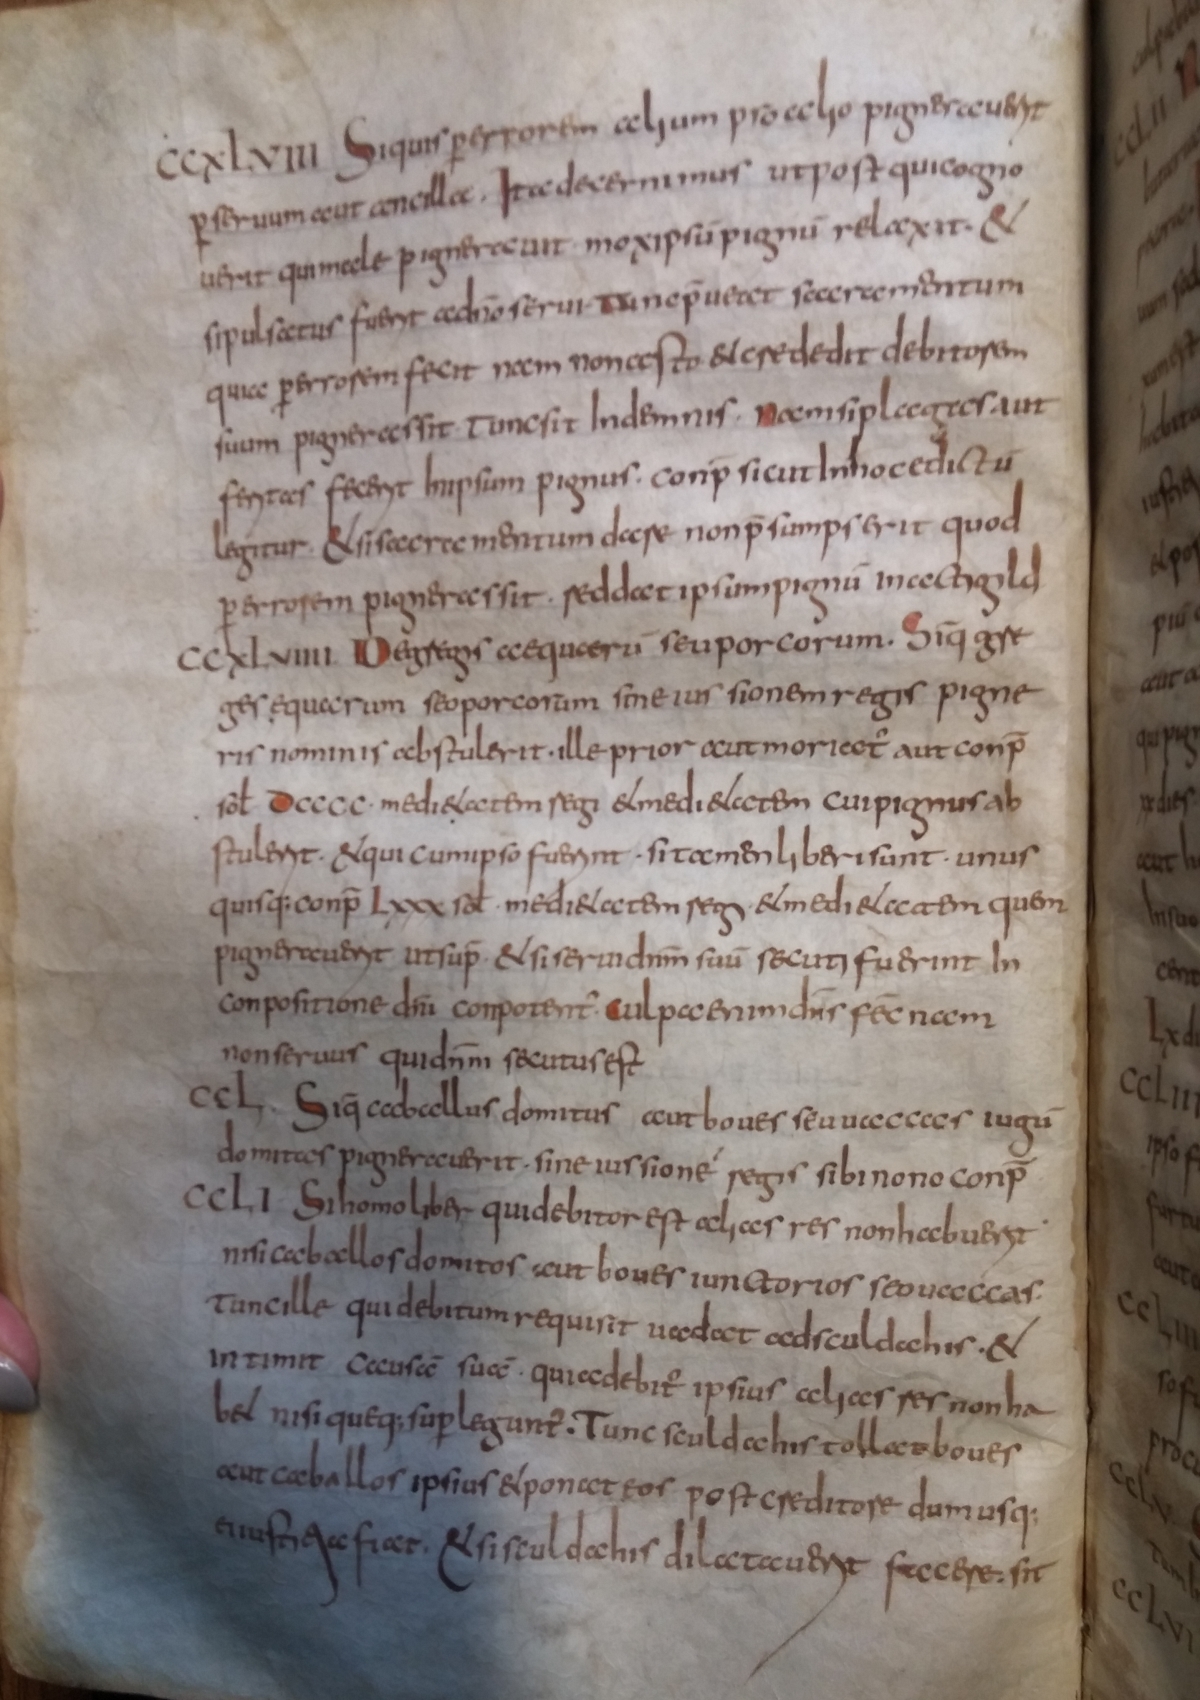 CCXLVIII Siquis perrorem alium pro alio pigneraverit
p̱ servum aut ancilla. Ita decernimus ut post qui cogno
verit qui male pigneravit mox ipsū pignū relaxit. &
si pulsatus fuerit ad dn̄o servi tunc p̄veat sacramentum
quia p̱ errorem fecit nam non asto & crededit debitorem
suum pignerassit Tunc sit Indemnis. Nam si plagas aut
feritas fecerit In ipsum pignus. conp̄ sicut In hoc edictū
legitur. & si sacramentum dare non p̄sumpserit quod
p̱ errorem pignerassit. reddat ipsum pignū in actogild
CCXLVIIII De greges aequarū seu porcorum. Siq̄ gre
ges equarum seo porcorum sine iussionem regis pigne
ris nominis abstulerit. ille prior aut moriat᷑ aut conp̄
sol̄ DCCCC. medi&atem regi & medi&atem cui pignus ab
stulerit. & qui cum ipso fuerint. si tamen liberi sunt. unus
quisq; conp̄ LXXX sol̄ medi&atem reg & medi&atem quem
pigneraverit ut sup̄. & si servi dn̄m suū secuti fuerint In
conpositione dn̄i conpotent᷑. Culpa enim dn̄s fec̄ nam
non servus qui dn̄m secutus est
CCL. Siq̄ caballus domitus aut boves seu vaccas iugū
domitas pigneraverit. sine iussionē regis sibi nono conp̄
CCLI Si homo liber qui debitor est alias res non habuerit
nisi caballos domitos aut boves iunctorios seo vaccas.
Tunc ille qui debitum requirit vadat ad sculdahis. &
intimit causā suā. qui a debit᷑ ipsius alias res non ha
b& nisi queq; sup̱ legunt᷑. Tunc sculdahis tollat boves
aut caballos ipsius & ponat eos post creditore dum usq;
ei iustitia fiat. & si sculdahis dilataverit facere. sit